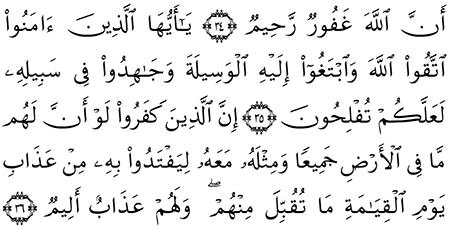 أَنَّ ٱللَّهَ غَفُورٌ رَّحِيمٌ ٣٤ يَـٰٓأَيُّهَا ٱلَّذِينَ ءَامَنُوا۟
ٱتَّقُوا۟ ٱللَّهَ وَٱبْتَغُوٓا۟ إِلَيْهِ ٱلْوَسِيلَةَ وَجَـٰهِدُوا۟ فِى سَبِيلِهِۦ
لَعَلَّكُمْ تُفْلِحُونَ ٣٥ إِنَّ ٱلَّذِينَ كَفَرُوا۟ لَوْ أَنَّ لَهُم
مَّا فِى ٱلْأَرْضِ جَمِيعًا وَمِثْلَهُۥ مَعَهُۥ لِيَفْتَدُوا۟ بِهِۦ مِنْ عَذَابِ
يَوْمِ ٱلْقِيَـٰمَةِ مَا تُقُبِّلَ مِنْهُمْ ۖ وَلَهُمْ عَذَابٌ أَلِيمٌ ٣٦